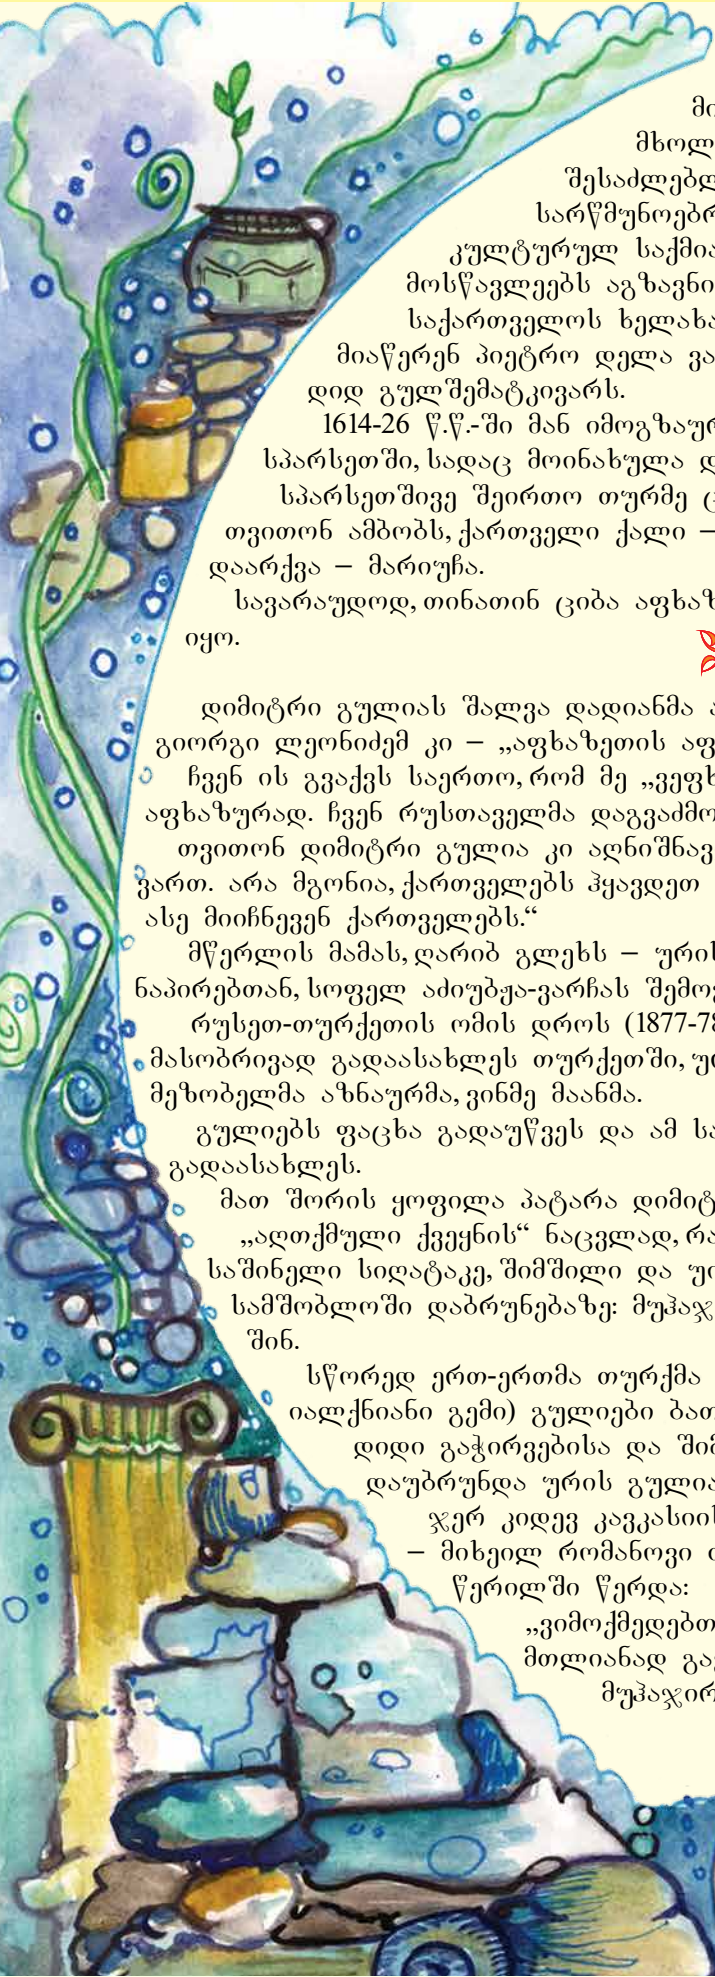 მი
მხოლ
შესაძლებლ
სარწმუნოებრ
კულტურულ საქმია
მოსწავლეებს აგზავნი
საქართველოს ხელახა
მიაწერენ პიეტრო დელა ვა
დიდ გულშემატკივარს.
1614-26 წ.წ.-ში მან იმოგზაურ
სპარსეთში, სადაც მოინახულა დ
სპარსეთშივე შეირთო თურმე ც
თვითონ ამბობს, ქართველი ქალი –
დაარქვა – მარიუჩა.
სავარაუდოდ, თინათინ ციბა აფხაზ
იყო.
დიმიტრი გულიას შალვა დადიანმა ა
გიორგი ლეონიძემ კი – „აფხაზეთის აფ
ჩვენ ის გვაქვს საერთო, რომ მე „ვეფხ
აფხაზურად. ჩვენ რუსთაველმა დაგვაძმო
თვითონ დიმიტრი გულია კი აღნიშნავ
ვართ. არა მგონია, ქართველებს ჰყავდეთ
ასე მიიჩნევენ ქართველებს.“
მწერლის მამას, ღარიბ გლეხს – ურის
ნაპირებთან, სოფელ აძიუბჟა-ვარჩას შემოგ
რუსეთ-თურქეთის ომის დროს (1877-78
მასობრივად გადაასახლეს თურქეთში, ურ
მეზობელმა აზნაურმა, ვინმე მაანმა.
გულიებს ფაცხა გადაუწვეს და ამ სა
გადაასახლეს.
მათ შორის ყოფილა პატარა დიმიტ
„აღთქმული ქვეყნის“ ნაცვლად, რა
საშინელი სიღატაკე, შიმშილი და უი
სამშობლოში დაბრუნებაზე: მუჰაჯ
შინ.
სწორედ ერთ-ერთმა თურქმა
იალქნიანი გემი) გულიები ბათ
დიდი გაჭირვებისა და შიმ
დაუბრუნდა ურის გულია
ჯერ კიდევ კავკასიის
– მიხეილ რომანოვი ი
წერილში წერდა:
„ვიმოქმედებთ
მთლიანად გავ
მუჰაჯირ